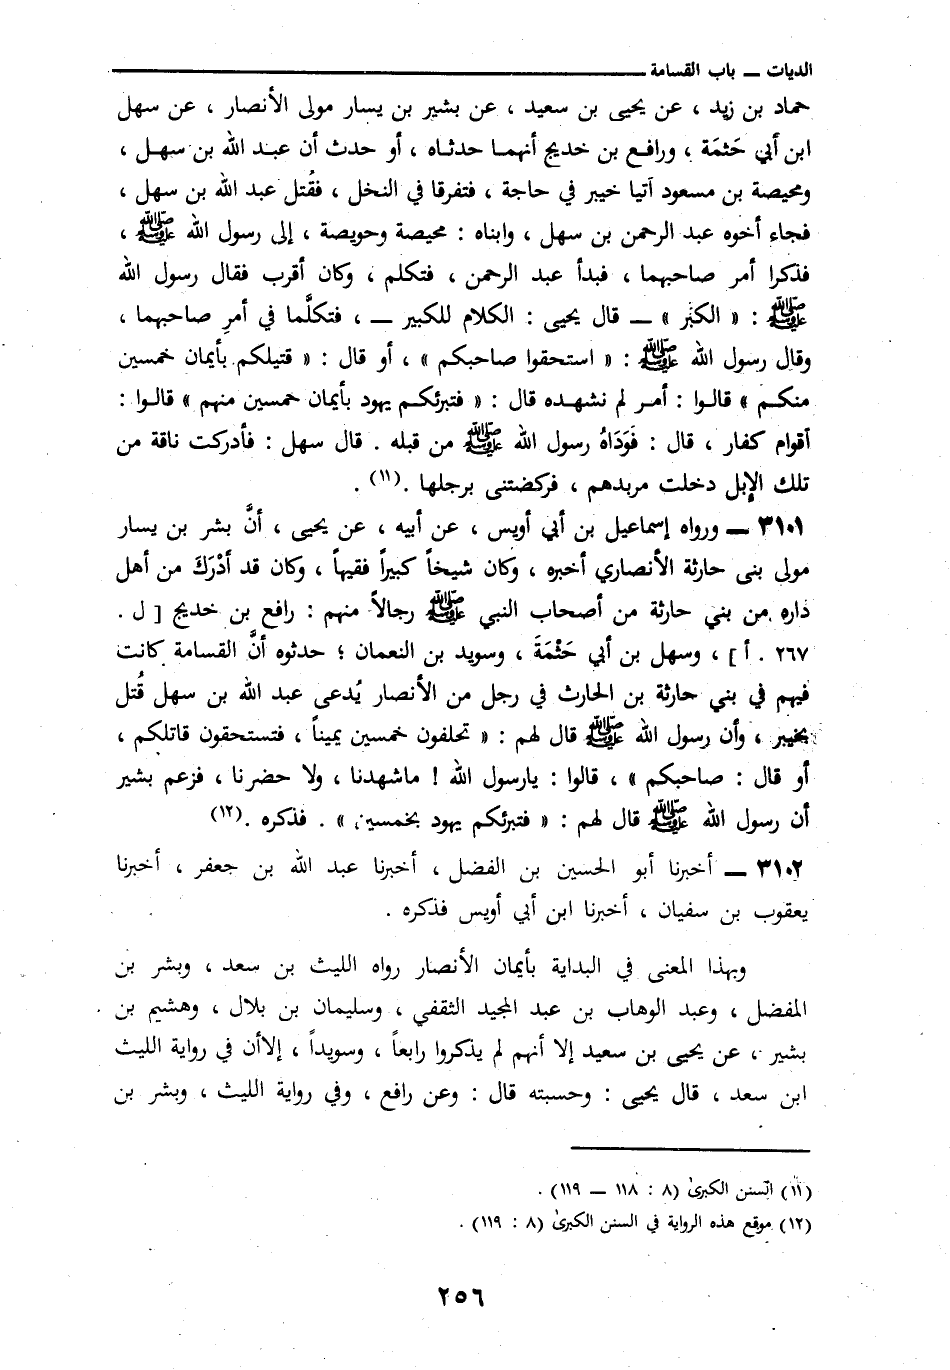 الديات ــ باب القسامة
حماد بن زيد ، عن يحيى بن سعيد ، عن بشير بن يسار مولى الأنصار ، عن سهل
ابن أبي حَثمَة ، ورافع بن خديج أنهما حدثاه ، أو حدث أن عبد الله بن سهل ،
ومحيصة بن مسعود أتيا خيبر في حاجة ، فتفرقا في النخل ، فقُتل عبد الله بن سهل ،
فجاء أخوه عبد الرحمن بن سهل ، وابناه : محيصة وحويصة ، إلى رسول الله ﷺ ،
فذكرا أمر صاحبهما ، فبدأ عبد الرحمن ، فتكلم ، وكان أقرب فقال رسول الله
ﷺ : « الكبر » ــ قال يحيى : الكلام للكبير ــ ، فتكلَّما في أمرِ صاحبهما ،
وقال رسول الله ﷺ : « استحقوا صاحبكم » ، أو قال : « قتيلكم بأيمان خمسين
منكم » قالوا : أمر لم نشهده قال : « فتبرئكم يهود بأيمان خمسين منهم » قالوا :
أقوام كفار ، قال : فَوَدَاهُ رسول الله ﷺ من قبله . قال سهل : فأدركت ناقة من
تلك الإبل دخلت مربدهم ، فركضتنى برجلها .(١١) .
٣١٠١ ــ ورواه إسماعيل بن أبي أويس ، عن أبيه ، عن يحيى ، أنَّ بشر بن يسار
مولى بنى حارثة الأنصاري أخبره ، وكان شيخاً كبيراً فقيهاً ، وكان قد أدْرَكَ من أهل
داره من بني حارثة من أصحاب النبي ﷺ رجالاً منهم : رافع بن خديج [ ل .
٢٦٧ . أ ] ، وسهل بن أبي حَثْمَةَ ، وسويد بن النعمان ؛ حدثوه أنَّ القسامة كانت
فيهم في بني حارثة بن الحارث في رجل من الأنصار يُدعى عبد الله بن سهل قُتل
بخيبر ، وأن رسول الله ﷺ قال لهم : « تحلفون خمسين يميناً ، فتستحقون قاتلكم ،
أو قال : صاحبكم » ، قالوا : يارسول الله ! ماشهدنا ، ولا حضرنا ، فزعم بشير
أن رسول الله ﷺ قال لهم : « فتبرئكم يهود بخمسين » . فذكره .(١٢)
٣١٠٢ ــ أخبرنا أبو الحسين بن الفضل ، أخبرنا عبد الله بن جعفر ، أخبرنا
يعقوب بن سفيان ، أخبرنا ابن أبي أويس فذكره .
وبهذا المعنى في البداية بأيمان الأنصار رواه الليث بن سعد ، وبشر بن
المفضل ، وعبد الوهاب بن عبد المجيد الثقفي ، وسليمان بن بلال ، وهشيم بن
بشير ، عن يحيى بن سعيد إلا أنهم لم يذكروا رابعاً ، وسويداً ، إلاأن في رواية الليث
ابن سعد ، قال يحيى : وحسبته قال : وعن رافع ، وفي رواية الليث ، وبشر بن
(١١) السنن الكبرىٰ (٨ : ١١٨ ــ ١١٩) .
(١٢) موقع هذه الرواية في السنن الكبرىٰ (٨ : ١١٩) .
٢٥٦